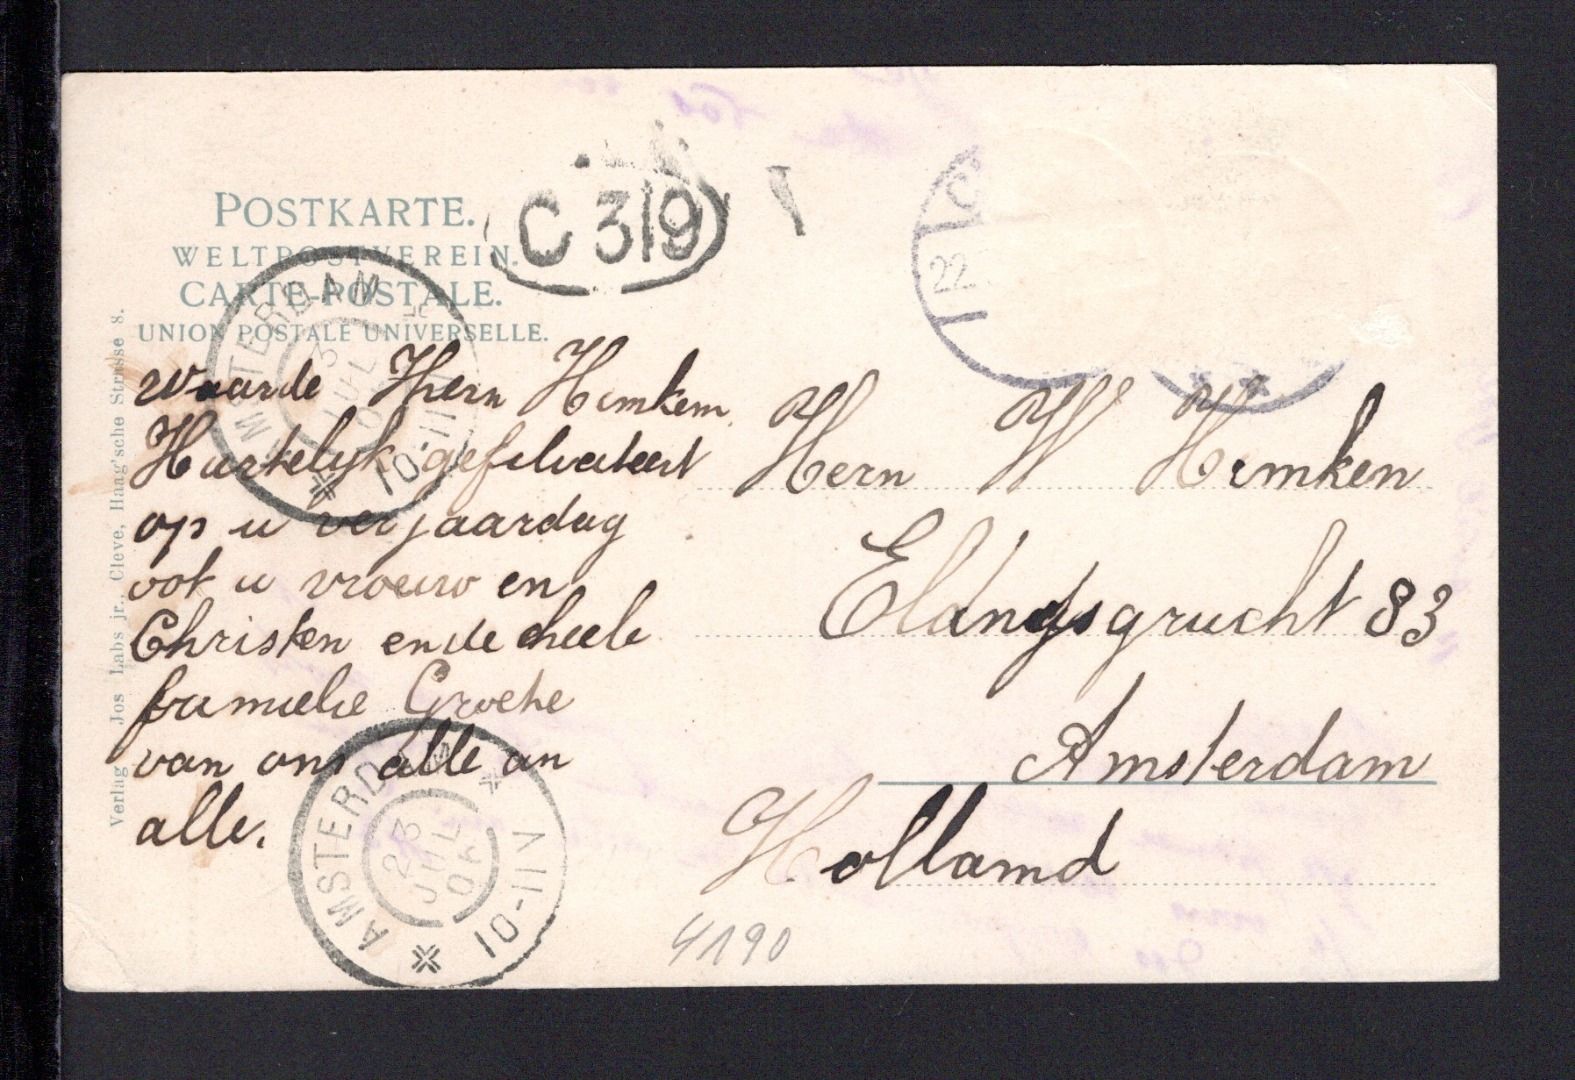 POSTKARTE.
WELTPOSTVEREIN.
CARTE-POSTALE.
UNION POSTALE UNIVERSELLE.
C 319
22.
AMSTERDAM
10-11
waarde Hern Himken
Hartelijk gefeliciteert
op u verjaardag
ook u vrouw en
Christen en de heele
familie Groete
van ons alle an
alle.
Hern W Himken
Elandsgracht 83
Amsterdam
Holland
AMSTERDAM
23 JUL 06
10-11V
4190
Verlag Jos Labs jr., Cleve, Haag'sche Strasse 8.